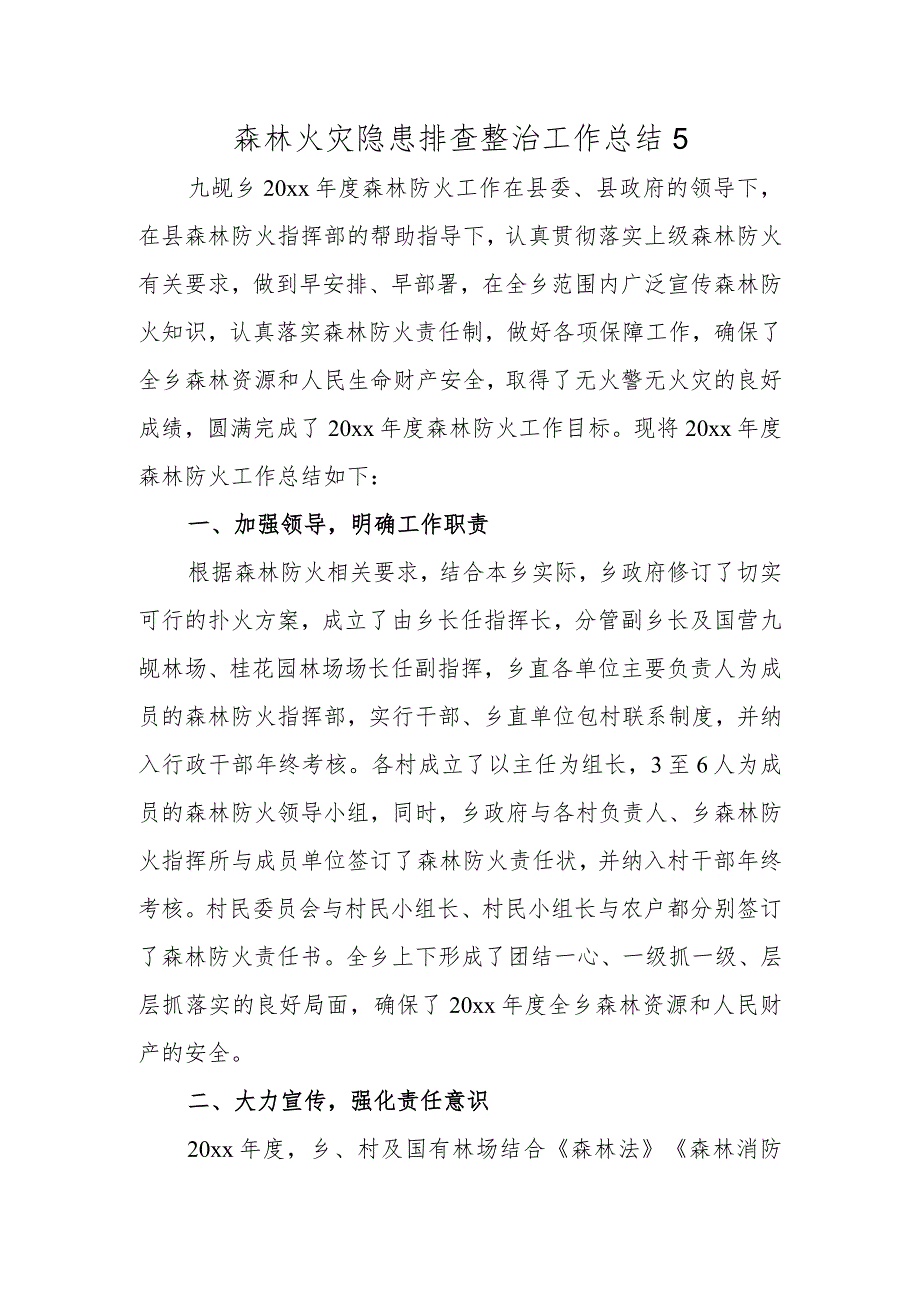 森林火灾隐患排查整治工作总结5
九岘乡20xx年度森林防火工作在县委、县政府的领导下，
在县森林防火指挥部的帮助指导下，认真贯彻落实上级森林防火
有关要求，做到早安排、早部署，在全乡范围内广泛宣传森林防
火知识，认真落实森林防火责任制，做好各项保障工作，确保了
全乡森林资源和人民生命财产安全，取得了无火警无火灾的良好
成绩，圆满完成了20xx年度森林防火工作目标。现将20xx年度
森林防火工作总结如下：
一、加强领导，明确工作职责
根据森林防火相关要求，结合本乡实际，乡政府修订了切实
可行的扑火方案，成立了由乡长任指挥长，分管副乡长及国营九
岘林场、桂花园林场场长任副指挥，乡直各单位主要负责人为成
员的森林防火指挥部，实行干部、乡直单位包村联系制度，并纳
入行政干部年终考核。各村成立了以主任为组长，3至6人为成
员的森林防火领导小组，同时，乡政府与各村负责人、乡森林防
火指挥所与成员单位签订了森林防火责任状，并纳入村干部年终
考核。村民委员会与村民小组长、村民小组长与农户都分别签订
了森林防火责任书。全乡上下形成了团结一心、一级抓一级、层
层抓落实的良好局面，确保了20xx年度全乡森林资源和人民财
产的安全。
二、大力宣传，强化责任意识
20xx年度，乡、村及国有林场结合《森林法》《森林消防